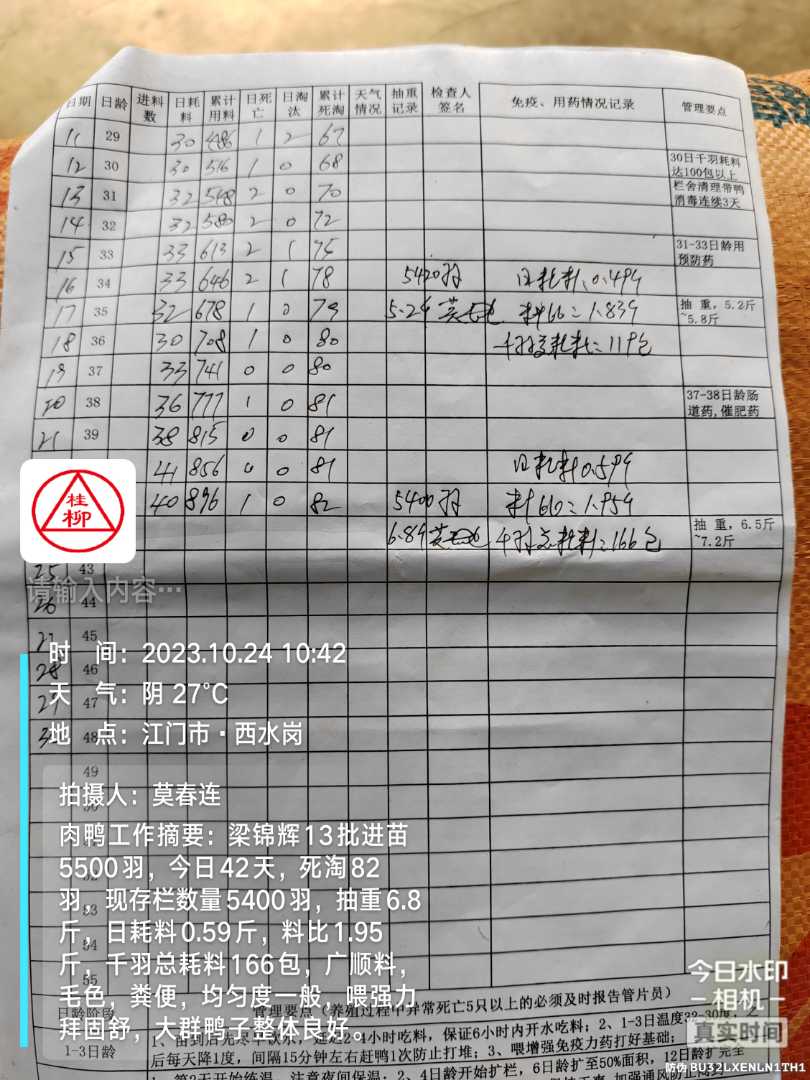 日期 日龄 进料数 日耗料 累计用料 日死亡 日淘汰 累计死淘 天气情况 抽重记录 检查人签名 免疫、用药情况记录 管理要点
11 29 30 486 1 2 67
12 30 30 516 1 0 68 30日千羽耗料达100包以上
13 31 32 548 2 0 70 栏舍清理带鸭消毒连续3天
14 32 32 580 2 0 72
15 33 33 613 2 1 75 31-33日龄用预防药
16 34 33 646 2 1 78 5420羽 日耗料:0.49斤
17 35 32 678 1 0 79 5.2斤 料比=1.83斤 抽重,5.2斤~5.8斤
18 36 30 708 1 0 80 千羽总耗料=119包
19 37 33 741 0 0 80
20 38 36 777 1 0 81 37-38日龄肠道药,催肥药
21 39 38 815 0 0 81
41 856 0 0 81 日耗料0.59斤
40 896 1 0 82 5400羽 料比=1.95斤
6.8斤 千羽总耗料=166包 抽重,6.5斤~7.2斤
25 43
26 44
27 45
28 46
47
48
49
桂柳
请输入内容…
时 间:2023.10.24 10:42
天 气:阴 27℃
地 点:江门市·西水岗
拍摄人:莫春连
肉鸭工作摘要:梁锦辉13批进苗
5500羽,今日42天,死淘82
羽,现存栏数量5400羽,抽重6.8
斤,日耗料0.59斤,料比1.95
斤,千羽总耗料166包,广顺料,
毛色,粪便,均匀度一般,喂强力
拜固舒,大群鸭子整体良好。
53
54
55
日龄阶段 管理要点(养殖过程中异常死亡5只以上的必须及时报告管片员)
1-3日龄
小时吃料,保证6小时内开水吃料;2、1-3日温度32-30度,
后每天降1度,间隔15分钟左右赶鸭1次防止打堆;3、喂增强免疫力药打好基础;
注意夜间保温;2、4日龄开始扩栏,6日龄扩至50%面积,12日龄扩完全
今日水印
相机
真实时间
防伪 BU32LXENLN1TH1